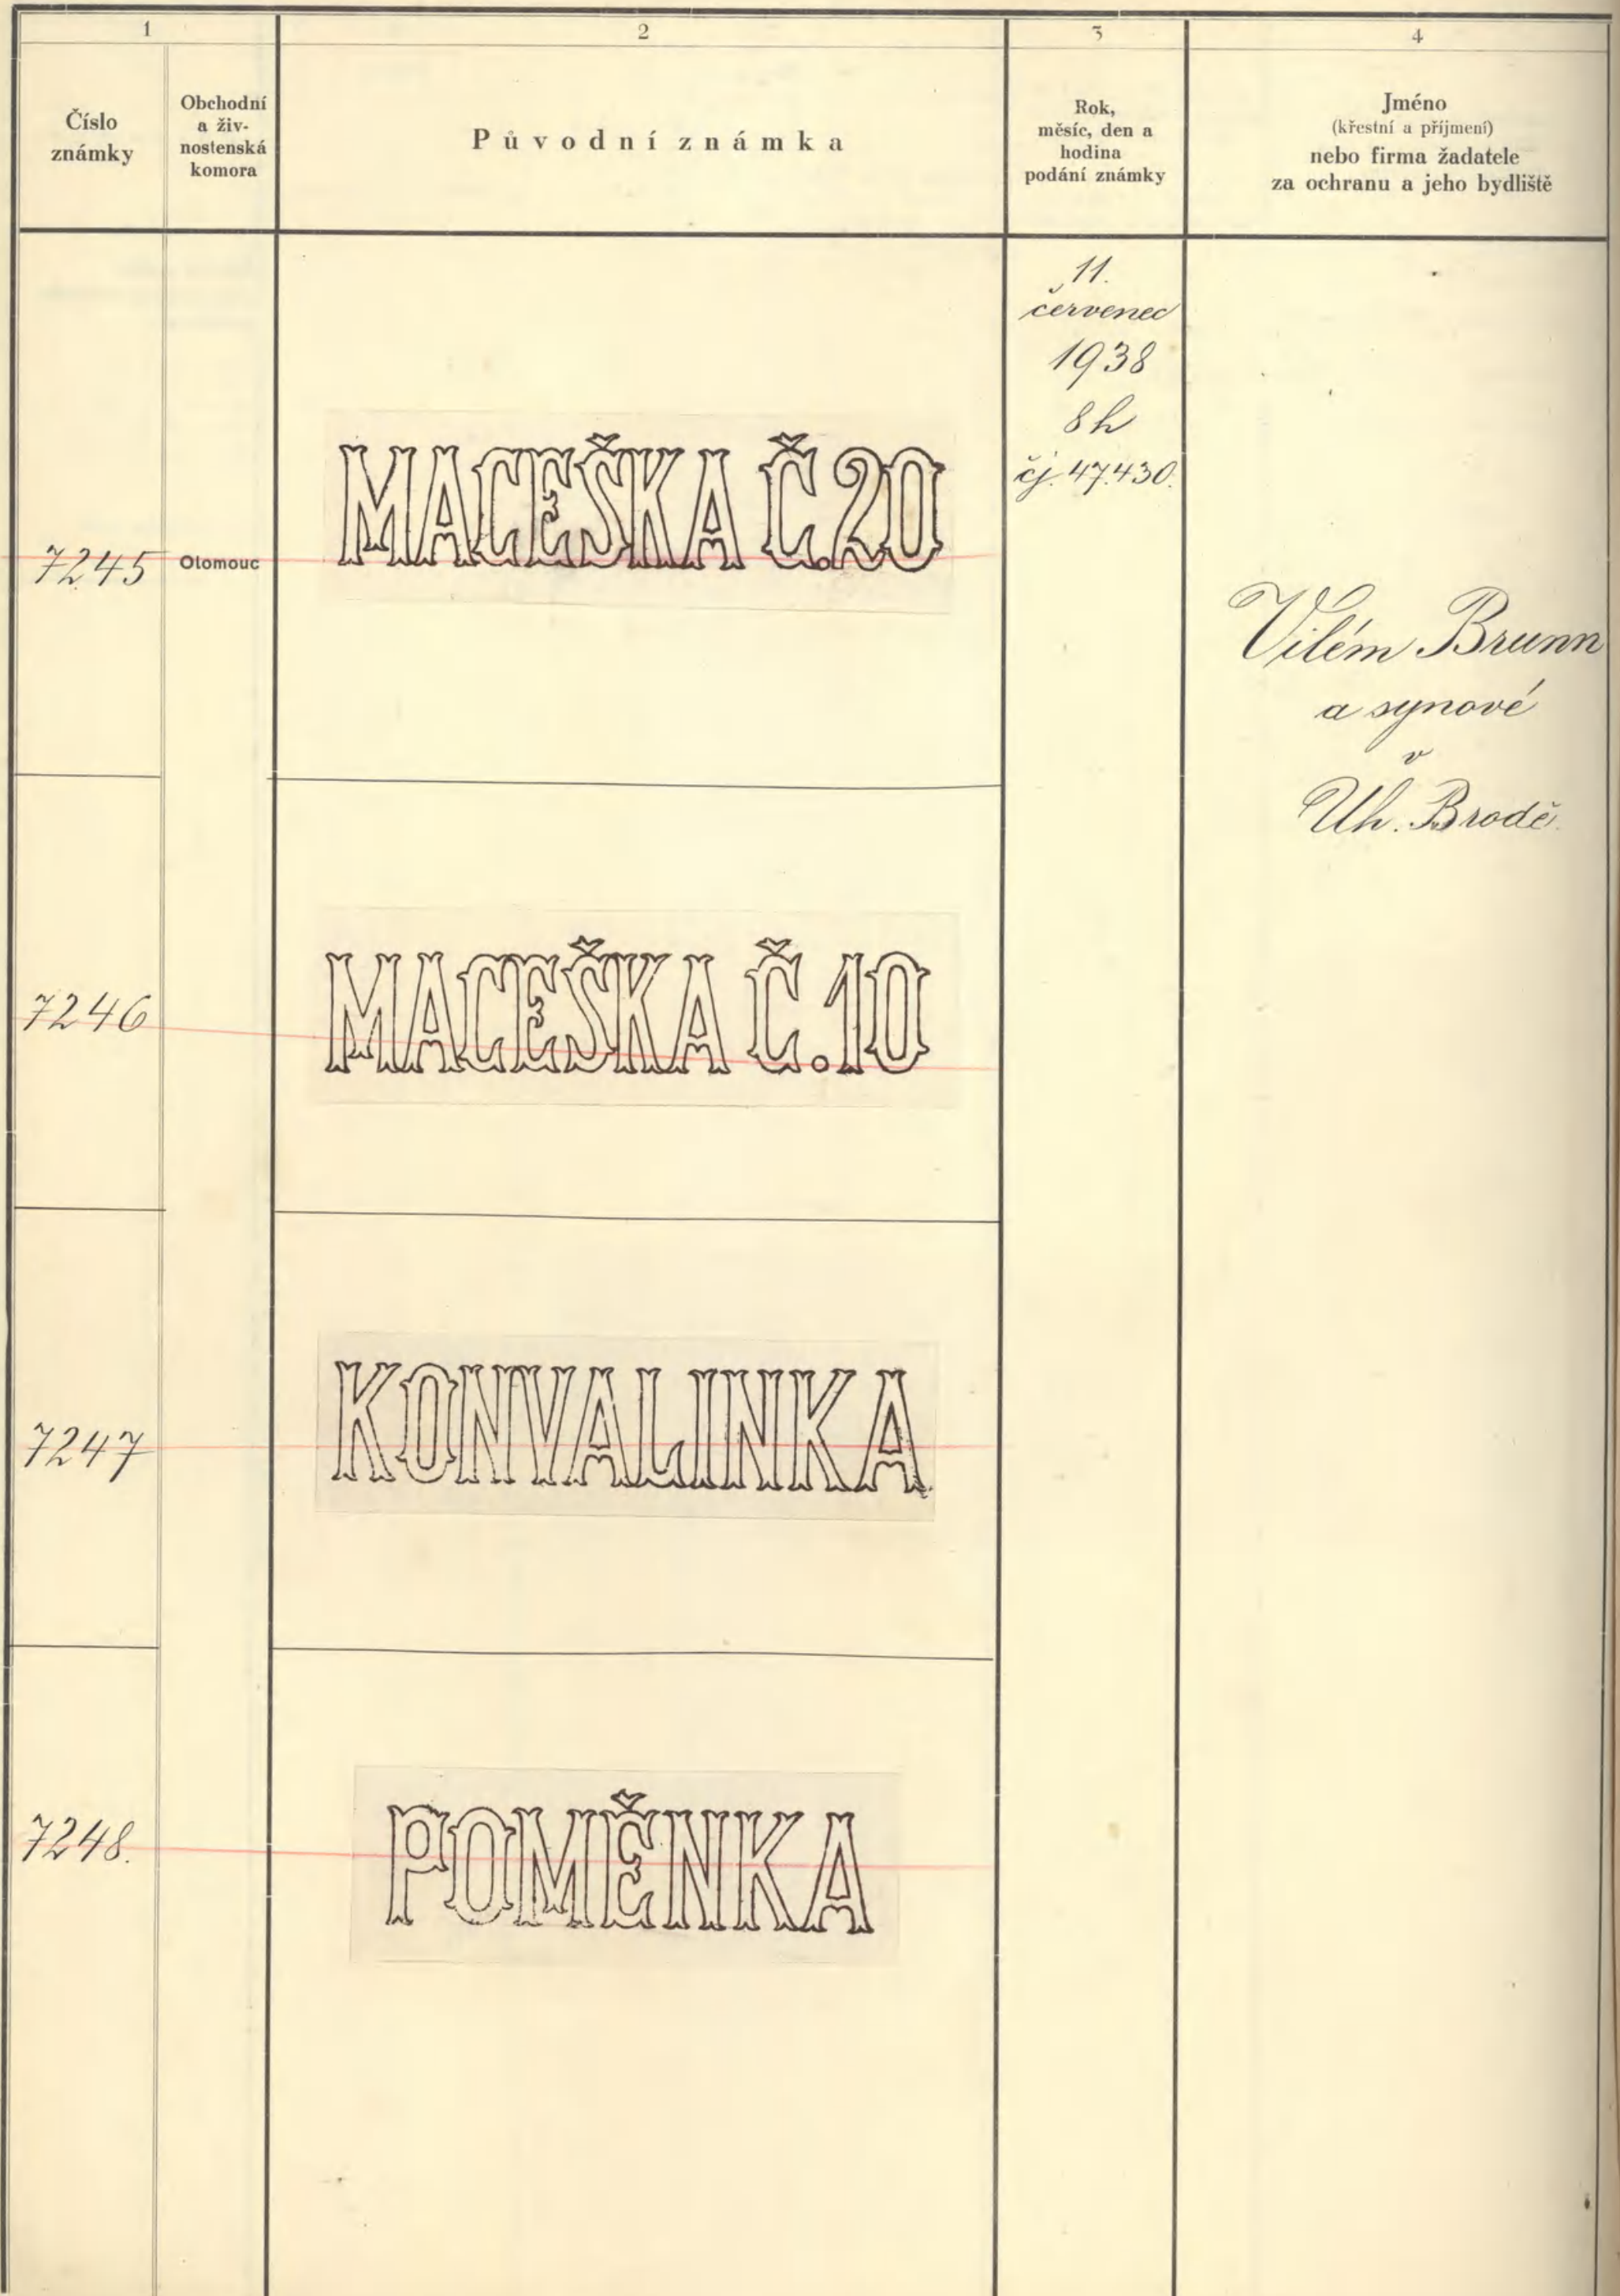 1
2
3
4
Číslo
známky
Obchodní
a živ-
nostenská
komora
Původní známka
Rok,
měsíc, den a
hodina
podání známky
Jméno
(křestní a příjmení)
nebo firma žadatele
za ochranu a jeho bydliště
7245
Olomouc
MACEŠKA Č.20
11.
červenec
1938
8 h
čj. 47.430.
Vilém Brunn
a synové
v
Uh. Brodě.
7246
MACEŠKA Č.10
7247
KONVALINKA
7248.
POMĚNKA